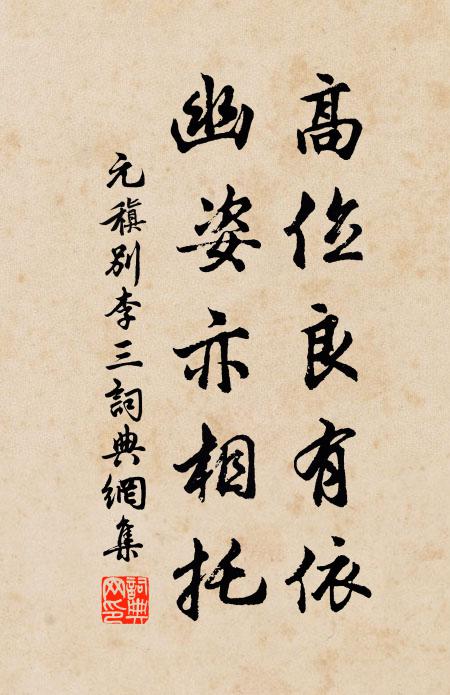 高位良有依
幽姿亦相托
元稹别李三詞典網集
詞典网印